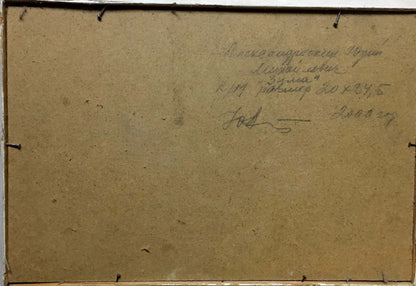 Александровский Юрий
Михайлович
"Зима"
к/м размер 20х24,5
2000 год